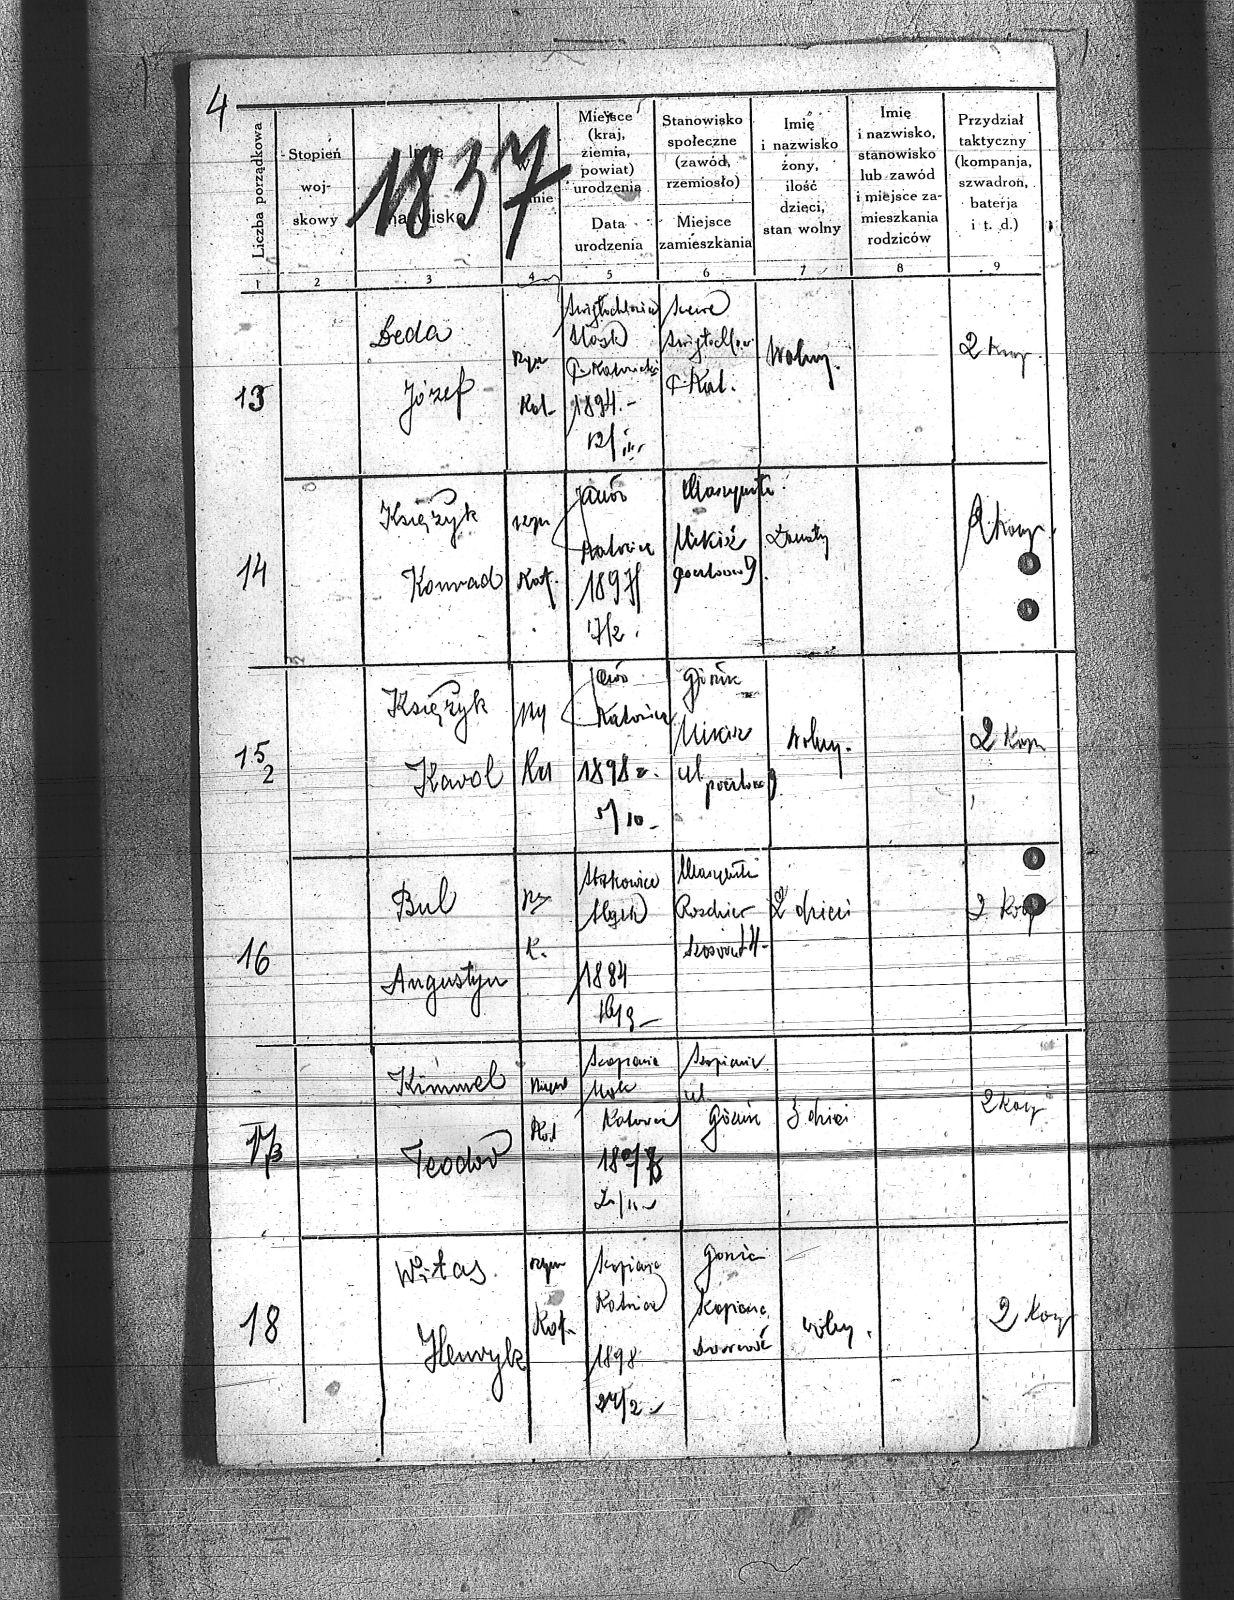 4
1837
Liczba porządkowa
Stopień
woj-
skowy
nazwisko
Miejsce
(kraj,
ziemia,
powiat)
urodzenia
Data
urodzenia
Stanowisko
społeczne
(zawód,
rzemiosło)
Miejsce
zamieszkania
Imię
i nazwisko
żony,
ilość
dzieci,
stan wolny
Imię
i nazwisko,
stanowisko
lub zawód
i miejsce za-
mieszkania
rodziców
Przydział
taktyczny
(kompanja,
szwadron,
baterja
i t. d.)
1 2 3 4 5 6 7 8 9
13
Beda
Józef
Rzym
Kat.
Śląsk
1894.-
12/III
Kat.
Wolny.
2 Komp.
14
Księżyk
Konrad
rzym
Kat.
Janów
Katowice
1897
17/2.
Maszynista
Nikisz
Pocztowa 9.
Żonaty
2 Komp.
15
2
Księżyk
Karol
Rz
Kat
Janów
Katowice
1898 r.
5/10 -
Górnik
Nikisz
ul
pocztowa 9
Wolny.
2 Komp
16
Bul
Augustyn
Rz
K.
1884
Maszynista
Rozdzień
2 dzieci
2 Komp
17/3
Kimmel
Teodor
Kat
Szopienic
Katowice
Szopienic
ul.
Górnik
3 dzieci
2 Komp
18
Witas
Henryk
rzym
Kat.
Szopienic
Katowice
1898
24/2 -
Górnik
wolny.
2 Komp